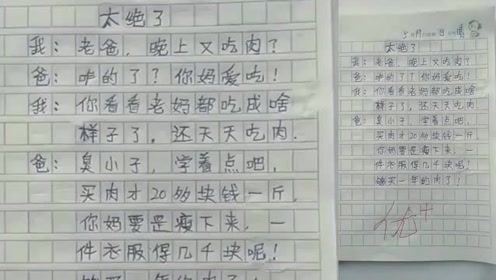 太绝了
我：老爸，晚上又吃肉？
爸：咋的了？你妈爱吃！
我：你看看老妈都吃成啥
样子了，还天天吃肉．
爸：臭小子，学着点吧，
买肉才20多块钱一斤，
你妈要是瘦下来，一
件衣服得几千块呢！
太绝了
我：老爸，晚上又吃肉？
爸：咋的了？你妈爱吃！
我：你看看老妈都吃成啥
样子了，还天天吃肉．
爸：臭小子，学着点吧，
买肉才20多块钱一斤，
你妈要是瘦下来，一
件衣服得几千块呢！
够买一年的肉了！
优+